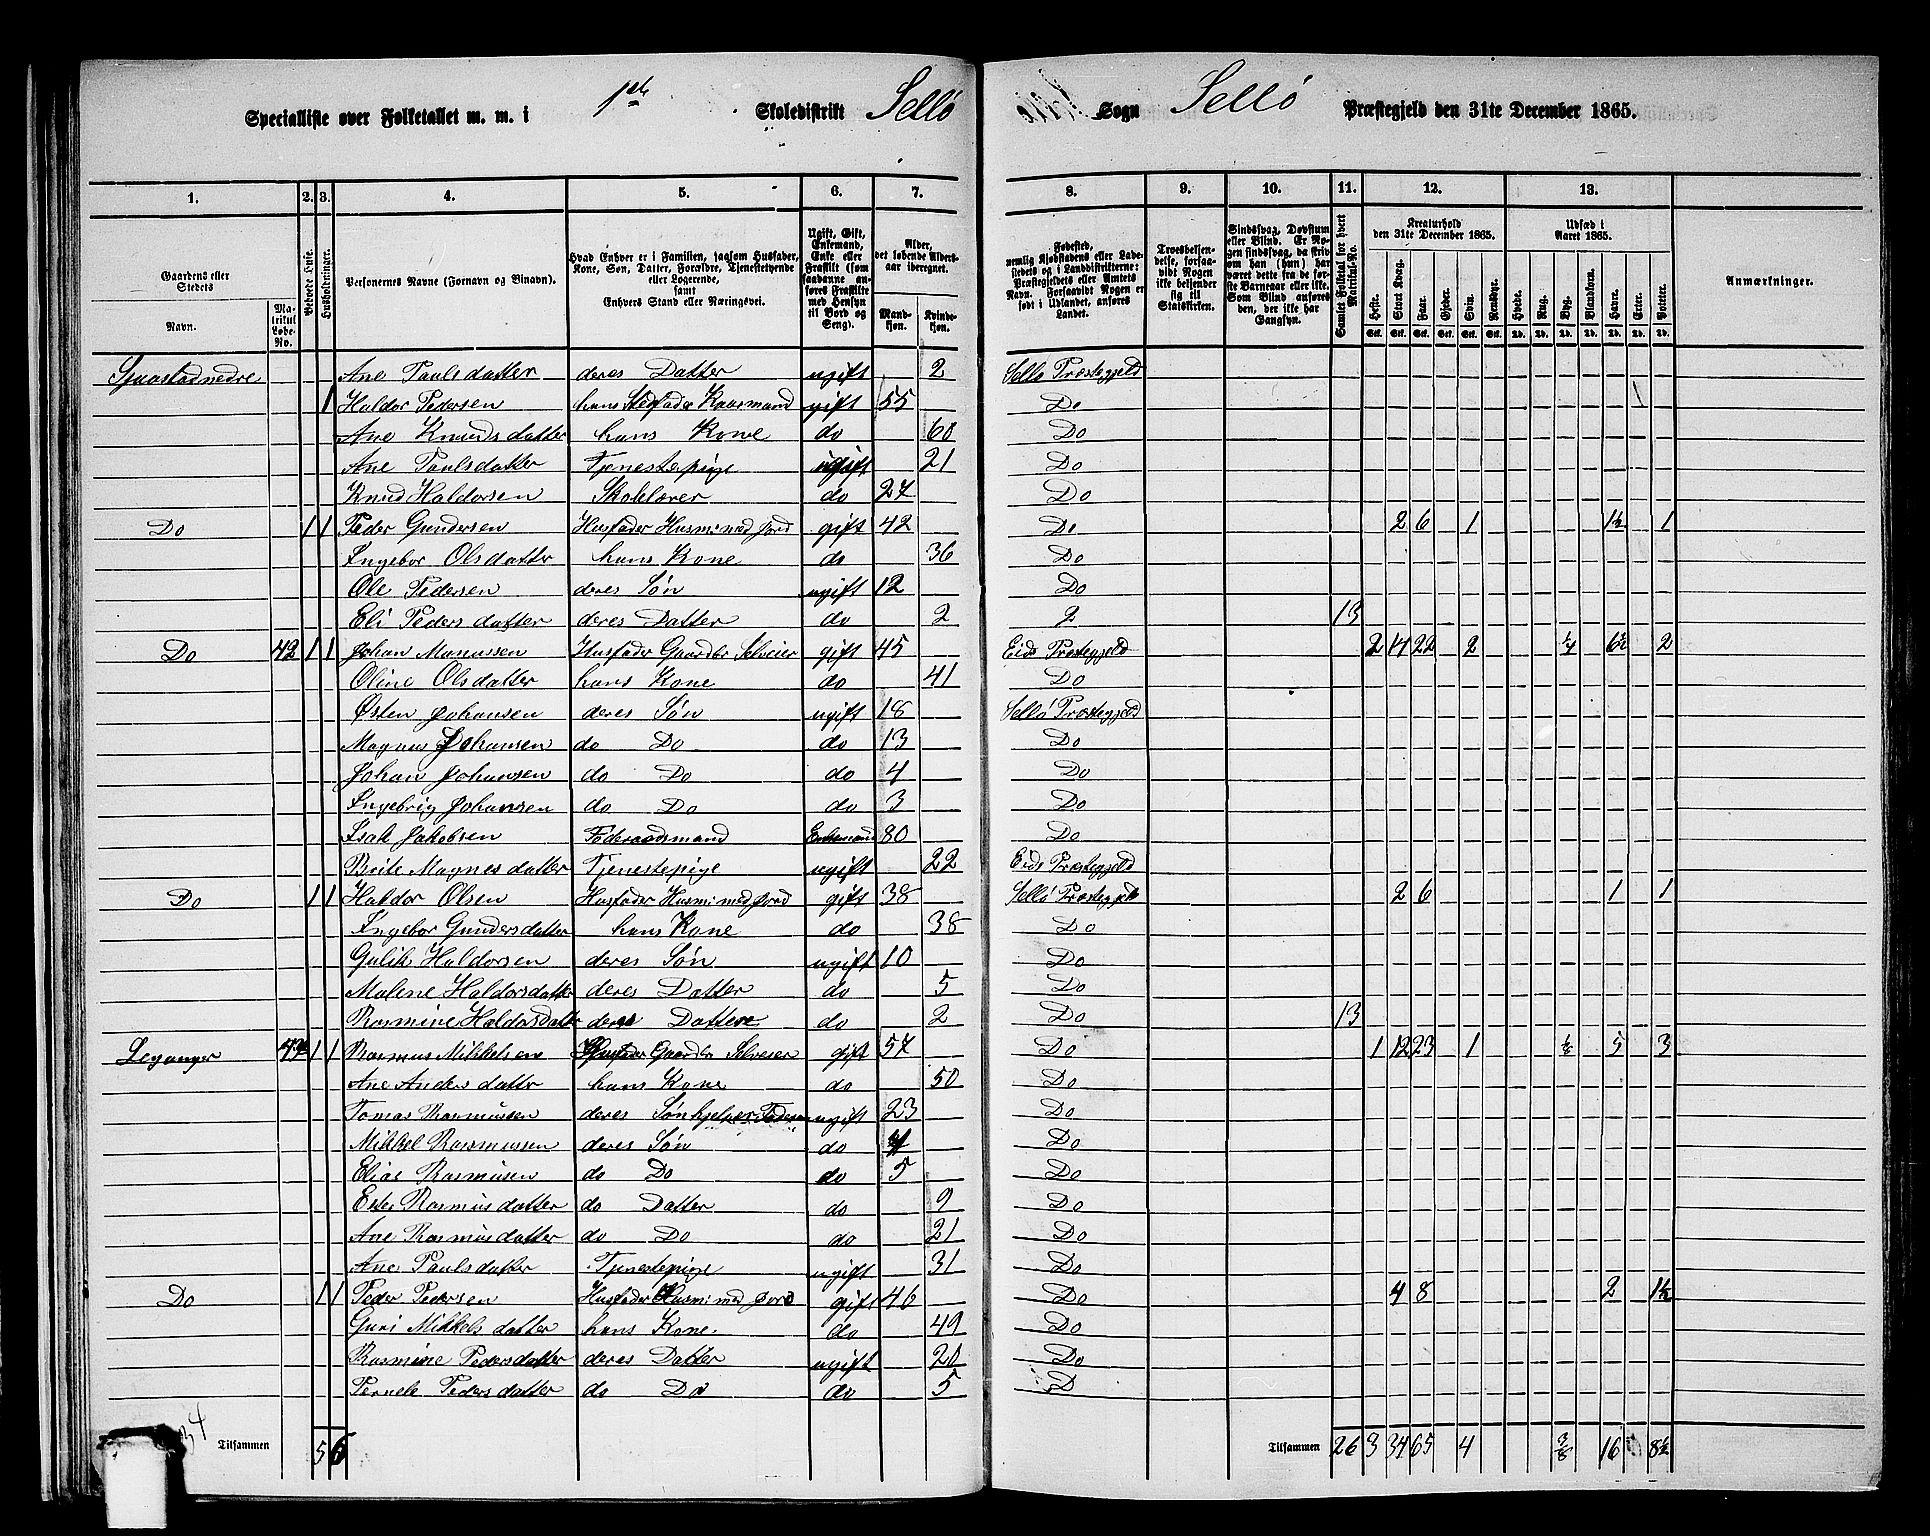 Specialliste over Folketallet m. m. i 1ste Skoledistrikt Sellø Sogn Sellø Præstegjeld den 31te December 1865.
1. 2. 3. 4. 5. 6. 7. 8. 9. 10. 11. 12. 13.
Gaardens eller Stedets
Navn.
Matrikul Løbe-No.
Beboede Huse.
Husholdninger.
Personernes Navne (Fornavn og Binavn).
Hvad Enhver er i Familien, saasom Husfader, Kone, Søn, Datter, Forældre, Tjenestetyende eller Logerende, samt Enhvers Stand eller Næringsvei.
Ugift, Gift, Enkemand, Enke eller Fraskilt (som saadanne anføres Fraskilte med Hensyn til Bord og Seng).
Alder, det løbende Aldersaar iberegnet.
Mandkjøn.
Kvindekjøn.
Fødested, nemlig Kjøbstadens eller Ladestedets og i Landdistrikterne: Præstegjeldets eller Amtets Navn. Forsaavidt Nogen er født i Udlandet, anføres Landet.
Troesbekjendelse, forsaavidt Nogen ikke bekjender sig til Statskirken.
Sindssvag, Døvstum eller Blind. Er Nogen sindssvag, da skriv om han (hun) har været dette fra de første Barneaar eller ikke. Som Blind anføres den, der ikke har Gangsyn.
Samlet Folketal for hvert Matrikul-No.
Kreaturhold den 31te December 1865.
Heste. Stort Kvæg. Faar. Gjeder. Svin. Rensdyr.
Udsæd i Aaret 1865.
Hvede. Rug. Byg. Blandkorn. Havre. Erter. Poteter.
Anmærkninger.
Ane Paulsdatter deres Datter ugift 2 Sellø Præstegjeld
1 Haldor Pedersen hans Stedfader Kaarmand gift 55 Do
Ane Knudsdatter hans Kone do 60 Do
Ane Paulsdatter Tjenestepige ugift 21 Do
Knud Haldorsen Skolelærer do 27 Do
Do 1 1 Peder Gundersen Husfader Husm: med Jord gift 42 Do 2 6 1 1½ 1
Ingebor Olsdatter hans Kone do 36 Do
Ole Pedersen deres Søn ugift 12 Do
Eli Pedersdatter deres Datter do 2 2 13
Do 42 1 1 Johan Monussen Husfader Gaardbr Selveier gift 45 Eids Præstegjeld 2 14 22 2 ¼ 6½ 2
Oline Olsdatter hans Kone do 41 Do
Østen Johansen deres Søn ugift 18 Sellø Præstegjeld
Magnus Johansen do Do do 13 Do
Johan Johansen do Do do 4 Do
Ingebrig Johansen do Do do 3 Do
Isak Jakobsen Føderaadsmand Enkemand 80 Do
Brite Magnesdatter Tjenestepige ugift 22 Eids Præstegjeld
Do 1 1 Haldor Olsen Husfader Husm: med Jord gift 38 Sellø Præstegjeld 2 6 1 1
Ingebor Gundersdatter hans Kone do 38 Do
Gulik Haldorsen deres Søn ugift 10 Do
Malene Haldorsdatter deres Datter do 5 Do
Rasmine Haldorsdatter deres Dattere do 2 Do 13
Leganger 1 1 Rasmus Mikkelsen Husfader Gaardbr Selveier gift 57 Do 1 12 23 1 ⅛ 5 3
Ane Andersdatter hans Kone do 50 Do
Tomas Rasmussen deres Søn hjelper Faderen ugift 23 Do
Mikkel Rasmussen deres Søn do Do
Elias Rasmusen do Do do 5 Do
Ester Rasmusdatter do Datter do 9 Do
Ane Rasmusdatter do Do do 21 Do
Ane Paulsdatter Tjenestepige ugift 31 Do
Do 1 1 Peder Pedersen Husfader Husm: med Jord gift 46 Do 4 8 2 1½
Guri Mikkelsdatter hans Kone do 49 Do
Rasmine Pedersdatter deres Datter ugift 20 Do
Pernele Pedersdatter do Do do 5 D
34
Tilsammen 5 6 Tilsammen 26 3 34 65 4 ⅜ 16 8½